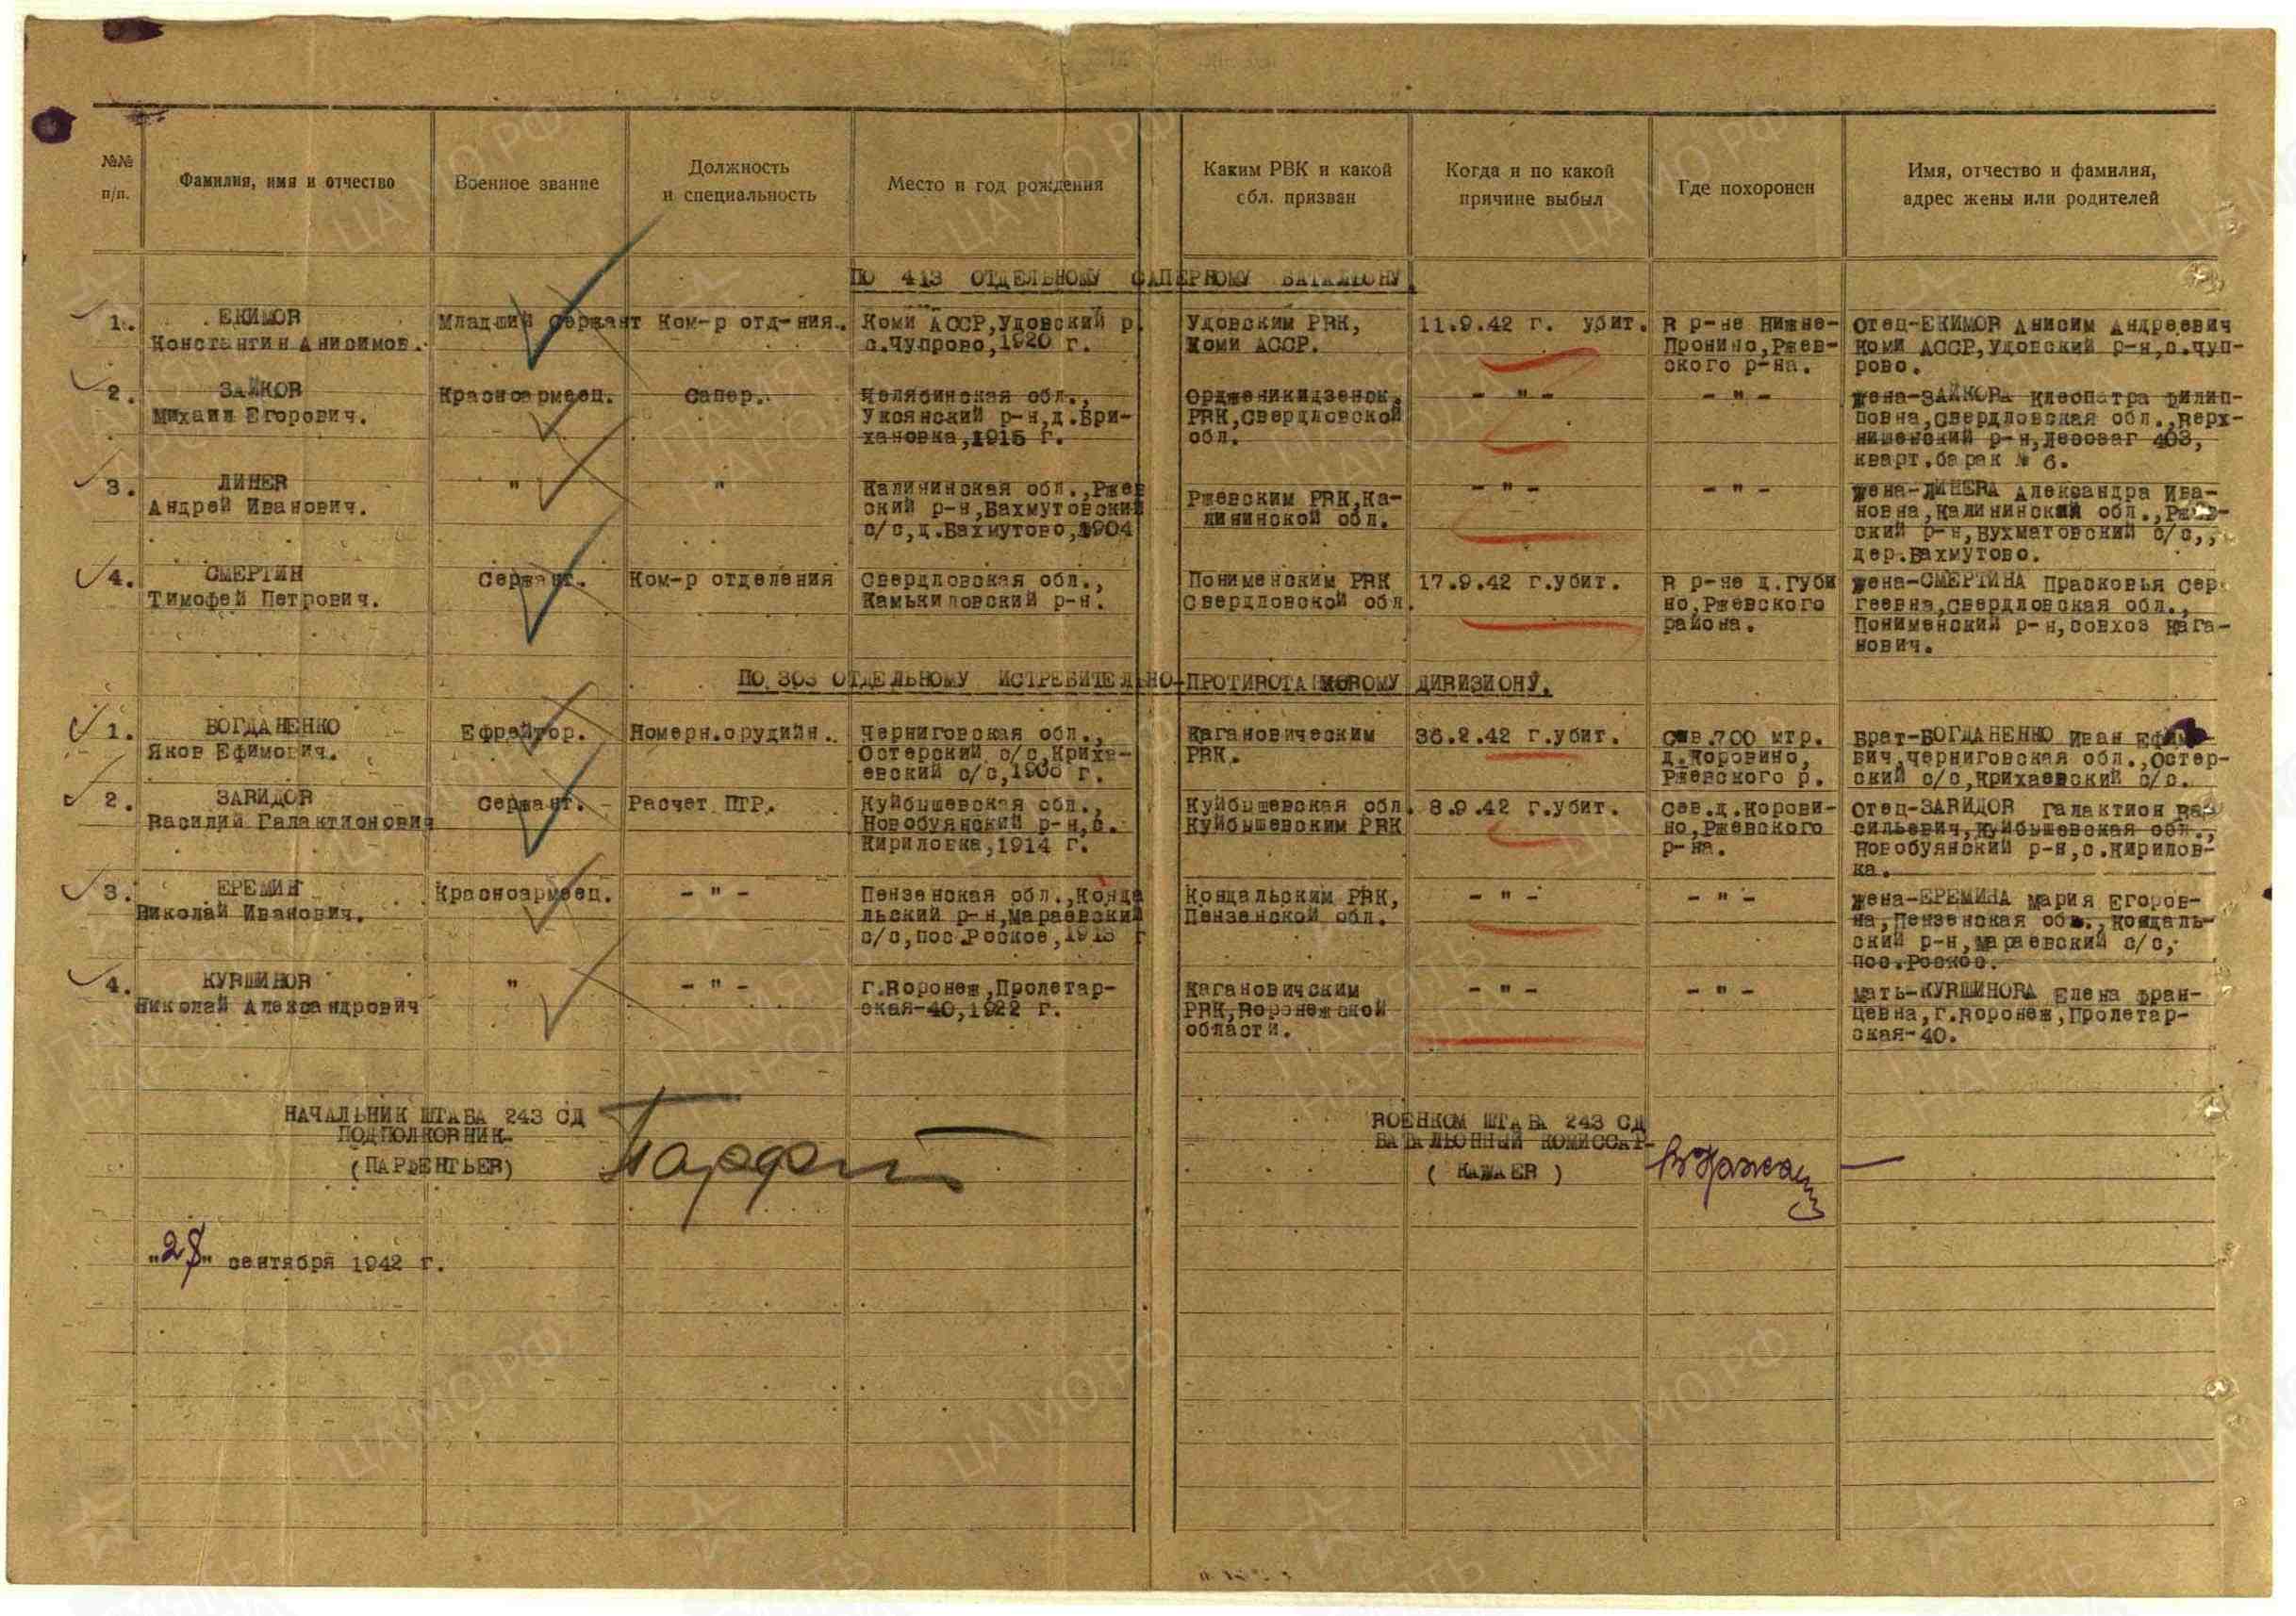 №№ п/п.
Фамилия, имя и отчество
Военное звание
Должность
и специальность
Место и год рождения
Каким РВК и какой
обл. призван
Когда и по какой
причине выбыл
Где похоронен
Имя, отчество и фамилия,
адрес жены или родителей
ПО 413 ОТДЕЛЬНОМУ САПЕРНОМУ БАТАЛИОНУ
1.
ЕКИМОВ
Константин Анисимов.
Младший сержант
Ком-р отд-ния.
Коми АССР,Удовский р.
с.Чупрово,1920 г.
Удовским РВК,
Коми АССР.
11.9.42 г. убит.
В р-не Нижне-
Пронино,Ржев-
ского р-на.
Отец-ЕКИМОВ Анисим Андреевич
Коми АССР,Удовский р-н,с.Чуп-
рово.
2.
ЗАЙКОВ
Михаил Егорович.
Красноармеец.
Сапер.
Челябинская обл.,
Уксянский р-н,д.Бри-
хановка,1915 г.
Орджоникидзенск.
РВК,Свердловской
обл.
- " -
- " -
Жена-ЗАЙКОВА Клеопатра Филип-
повна,Свердловская обл.,Верх-
нишенский р-н,Лесозаг 403,
кварт.барак № 6.
3.
ЛИНЕВ
Андрей Иванович.
"
"
Калининская обл.,Ржев
ский р-н,Бахмутовский
с/с,д.Бахмутово,1904
Ржевским РВК,Ка-
лининской обл.
- " -
- " -
Жена-ЛИНЕВА Александра Ива-
новна,Калининский обл.,Ржев-
ский р-н,Бухматовский с/с,,
дер.Бахмутово.
4.
СМЕРТИН
Тимофей Петрович.
Сержант.
Ком-р отделения
Свердловская обл.,
Камькиловский р-н.
Понименским РВК
Свердловской обл.
17.9.42 г.убит.
В р-не д.Губи
но,Ржевского
района.
Жена-СМЕРТИНА Прасковья Сер
геевна,Свердловская обл.,
Понименский р-н,совхоз Кага-
нович.
ПО 303 ОТДЕЛЬНОМУ ИСТРЕБИТЕЛЬНО-ПРОТИВОТАНКОВОМУ ДИВИЗИОНУ.
1.
БОГДАНЕНКО
Яков Ефимович.
Ефрейтор.
Номерн.орудийн.
Черниговская обл.,
Остерский с/с,Криха-
евский с/с,1906 г.
Кагановическим
РВК.
г.убит.
Сев.700 мтр.
д.Коровино,
Ржевского р.
Брат-БОГДАНЕНКО Иван
вич,Черниговская обл.,Остер-
ский с/с,Крихаевский с/с.
2.
ЗАВИДОВ
Василий Галактионович
Сержант.
Расчет ПТР.
Куйбышевская обл.,
Новобуянский р-н,с.
Кириловка,1914 г.
Куйбышевская обл.
Куйбышевским РВК
8.9.42 г.убит.
Сев.д.Корови-
но,Ржевского
р-на.
Отец-ЗАВИДОВ Галактион Ва
сильевич,Куйбышевская обл.,
Новобуянский р-н,с.Кирилов-
ка.
3.
ЕРЕМИН
Николай Иванович.
Красноармеец.
- " -
Пензенская обл.,Конда
льский р-н,Мараевский
с/с,пос.Роское,1913 г
Кондальским РВК,
Пензенской обл.
- " -
- " -
Жена-ЕРЕМИНА Мария Егоров-
на,Пензенская обл.,Кондаль-
ский р-н,Мараевский с/с,
пос.Роское.
4.
КУВШИНОВ
Николай Александрович
"
- " -
г.Воронеж,Пролетар-
ская-40,1922 г.
Кагановичским
РВК,Воронежской
области.
- " -
- " -
Мать-КУВШИНОВА Елена Фран-
цевна,г.Воронеж,Пролетар-
ская-40.
НАЧАЛЬНИК ШТАБА 243 СД
ПОДПОЛКОВНИК-
(ПАРФЕНТЬЕВ)
Парфен
ВОЕНКОМ ШТАБА 243 СД
БАТАЛЬОННЫЙ КОМИССАР-
( КАЖАЕВ )
"28" сентября 1942 г.
ЦАМО РФ
ПАМЯТЬ
НАРОДА